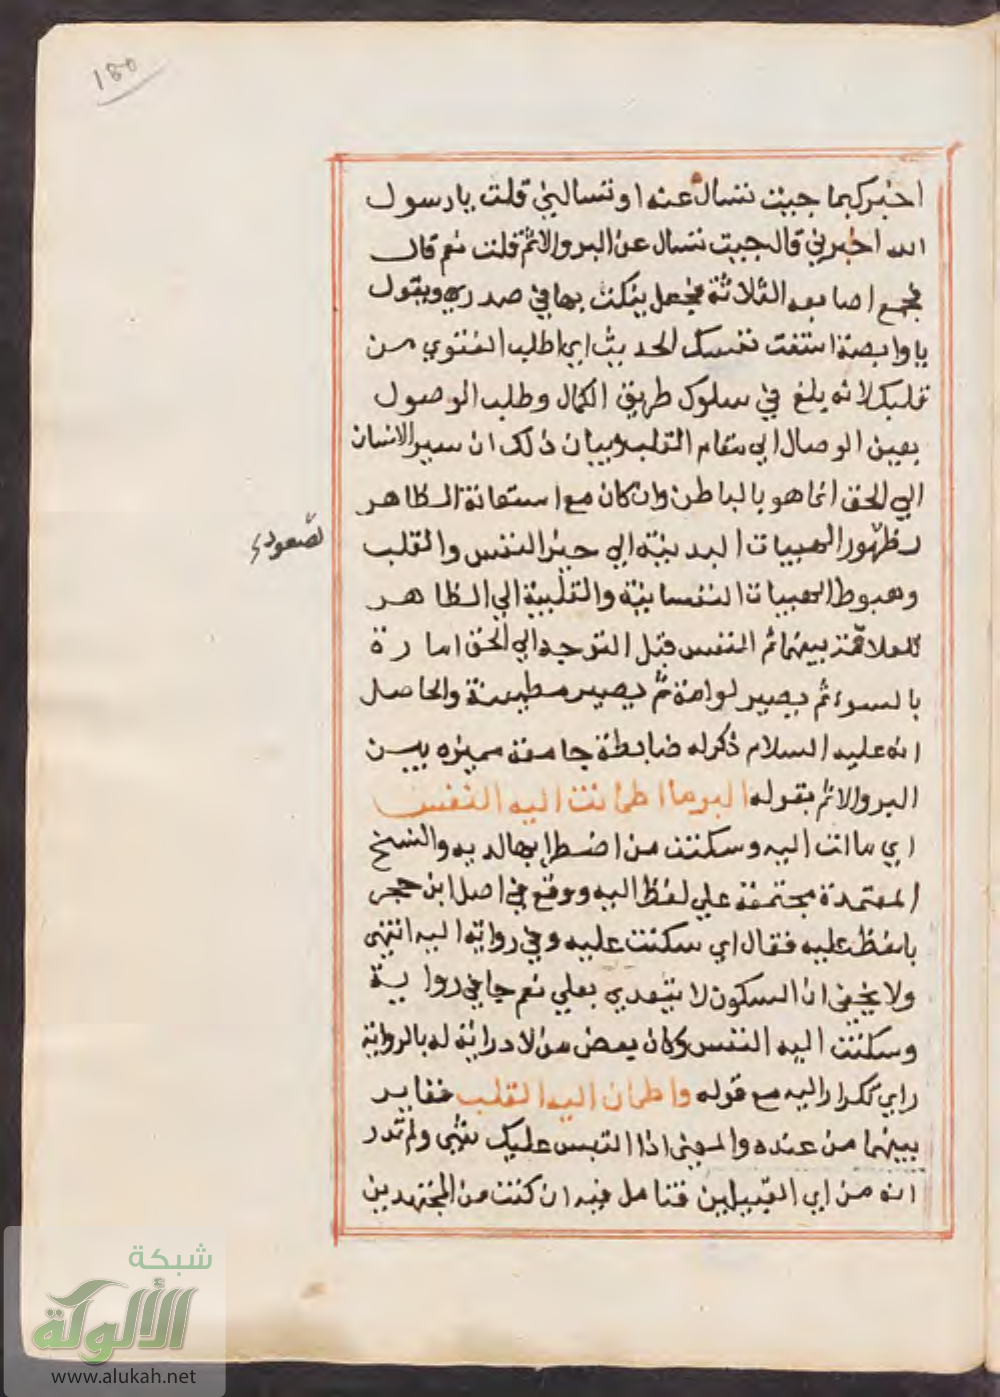 180
اخبركبما جيت تسال عنه او تسالني قلت يا رسول
الله اخبرني قال جيت تسال عن البر والاثم قلت نعم قال
فجمع اصابعه الثلاثة فجعل ينكت بها في صدري ويقول
يا وابصة استفت نفسك الحديث اي اطلب الفتوي من
قلبك لانه بلغ في سلوك طريق الكمال وطلب الوصول
بعين الوصال الي مقام القلب وبيان ذلك ان سير الانسان
الي الحق انما هو بالباطن وان كان مع استعانة الظاهر
لظهور الهييات البدنية الي حيز النفس والقلب
لصعود
وهبوط الهييات النفسانية والقلبية الي الظاهر
للعلاقة بينهما ثم النفس قبل التوجه الي الحق امارة
بالسوء ثم يصير لوامة ثم يصير مطمينة والحاصل
انه عليه السلام ذكر له ضابطة جامعة مميزه بين
البر والاثم بقوله البر ما اطمانت اليه النفس
اي ما انت اليه وسكنت من اضطرابها لديه والنسخ
المعتمدة مجتمعة علي لفظ اليه ووقع في اصل ابن حجر
بلفظ عليه فقال اي سكنت عليه وفي رواية اليه انتهى
ولا يخفى ان السكون لا يتعدي بعلي نعم جا في رواية
وسكنت اليه النفس وكان بعض من لا دراية له بالرواية
راي تكرار اليه مع قوله واطمان اليه القلب فغاير
بينهما من عنده والمعنى اذا التبس عليك شي ولم تدر
انه من اي القبيلين فتامل فيه ان كنت من المجتهدين
شبكة
الألوكة
www.alukah.net